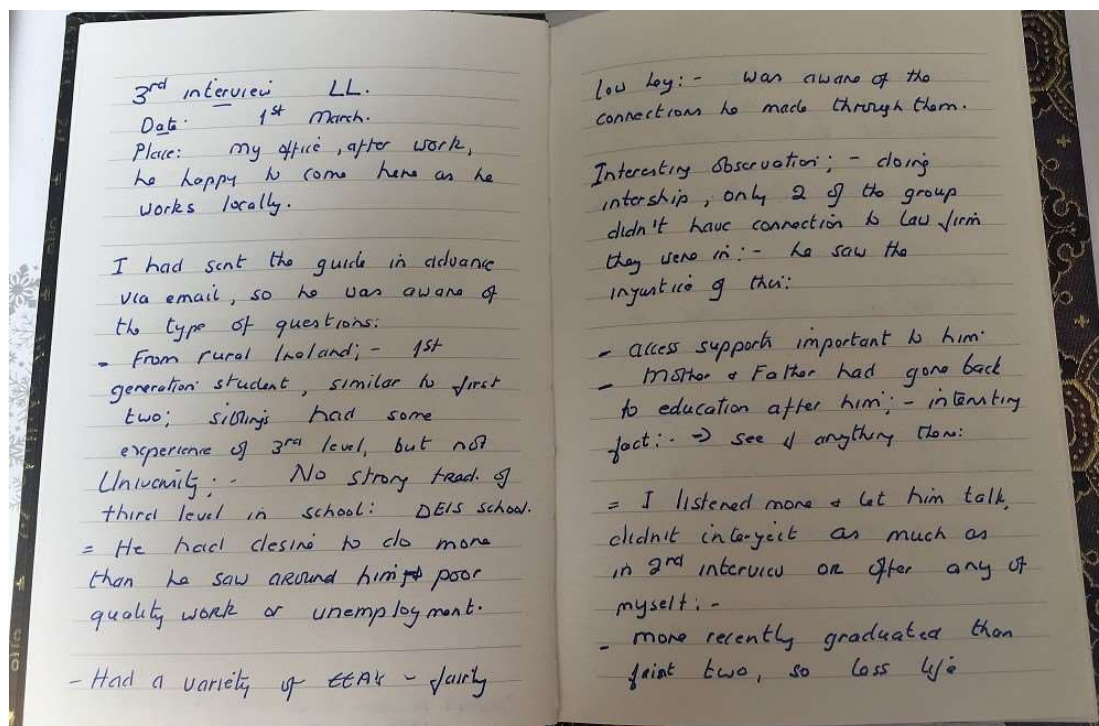 3rd interview LL.
Date: 1st March.
Place: my office, after work,
he happy to come here as he
works locally.
I had sent the guide in advance
via email, so he was aware of
the type of questions:
- From rural Ireland; - 1st
generation student, similar to first
two; siblings had some
experience of 3rd level, but not
University; - No strong trad. of
third level in school: DEIS school.
= He had desire to do more
than he saw around him poor
quality work or unemployment.
- Had a variety of ECA's - fairly
low key: - was aware of the
connections he made through them.
Interesting Observation; - doing
intership, only 2 of the group
didn't have connection to law firm
they were in: - he saw the
injustice of this:
- access supports important to him.
- Mother & Father had gone back
to education after him; - interesting
fact: - => see if anything then:
= I listened more & let him talk,
didn't interject as much as
in 2nd interview or offer any of
myself: -
- more recently graduated than
first two, so less life